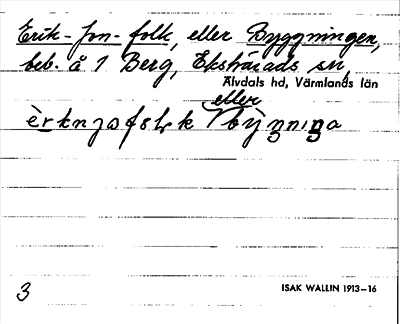 Erik-Jon-folk, eller Byggningen,
beb. å 1 Berg, Ekshärads sn,
Älvdals hd, Värmlands län
eller
3
ISAK WALLIN 1913–16